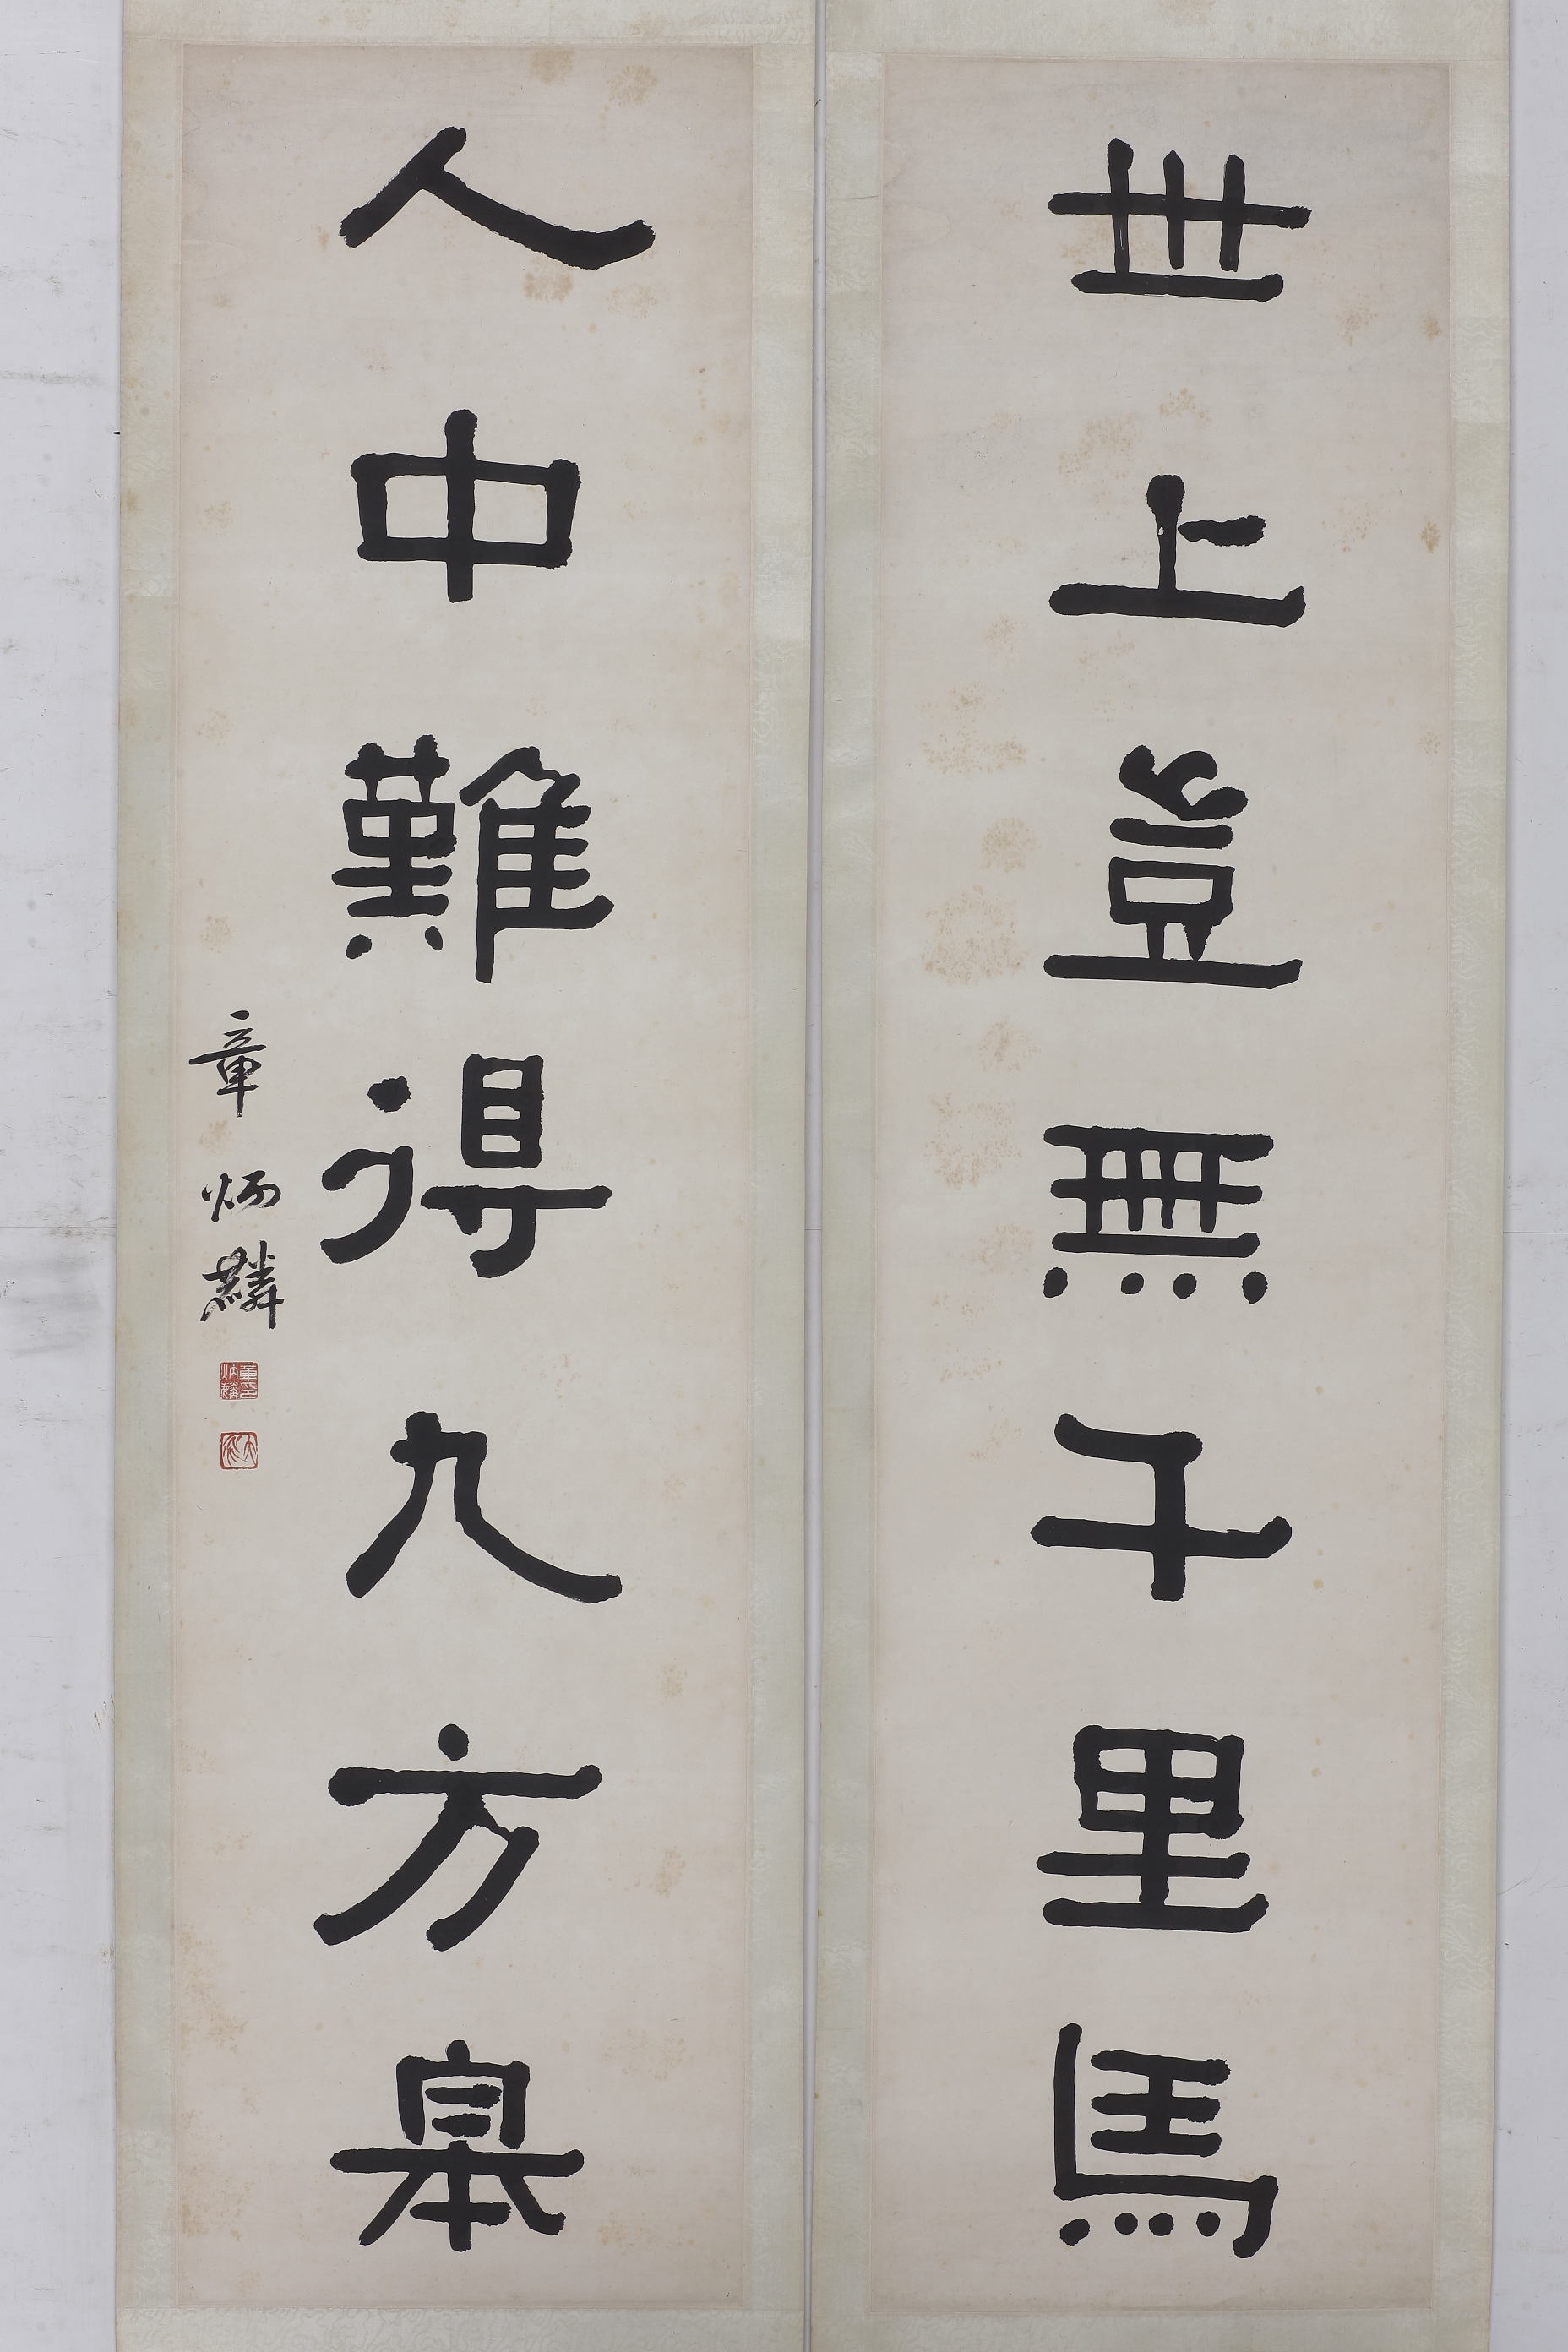 世上豈無千里馬
人中難得九方皋
章炳麟
章炳麟印